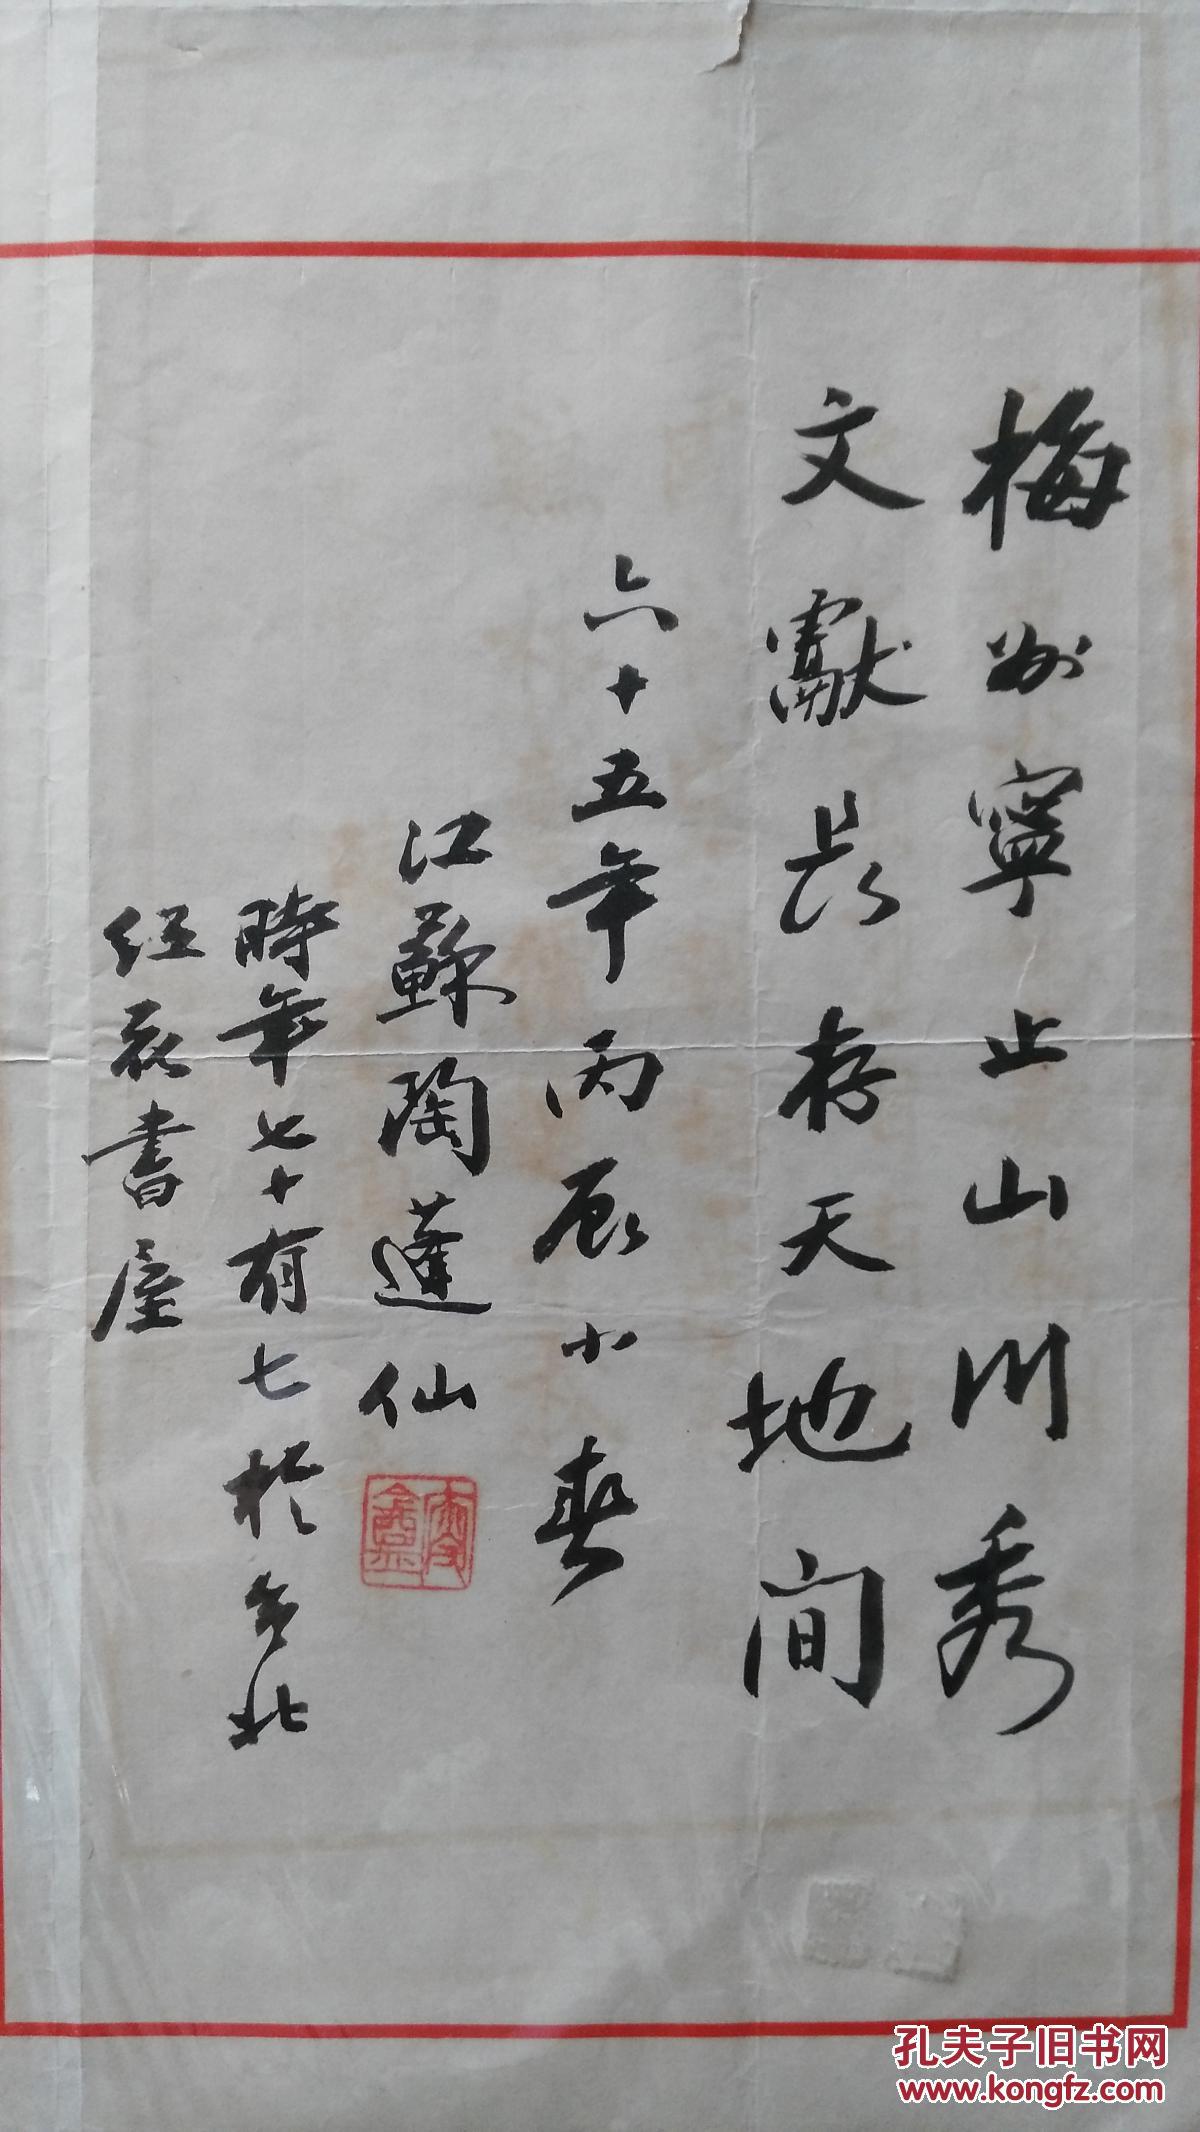 梅州寧止山川秀
文獻長存天地间
六十五年丙辰小春
江蘇陶蓬仙
時年七十有七於台北
書屋
孔夫子旧书网
www.kongfz.com